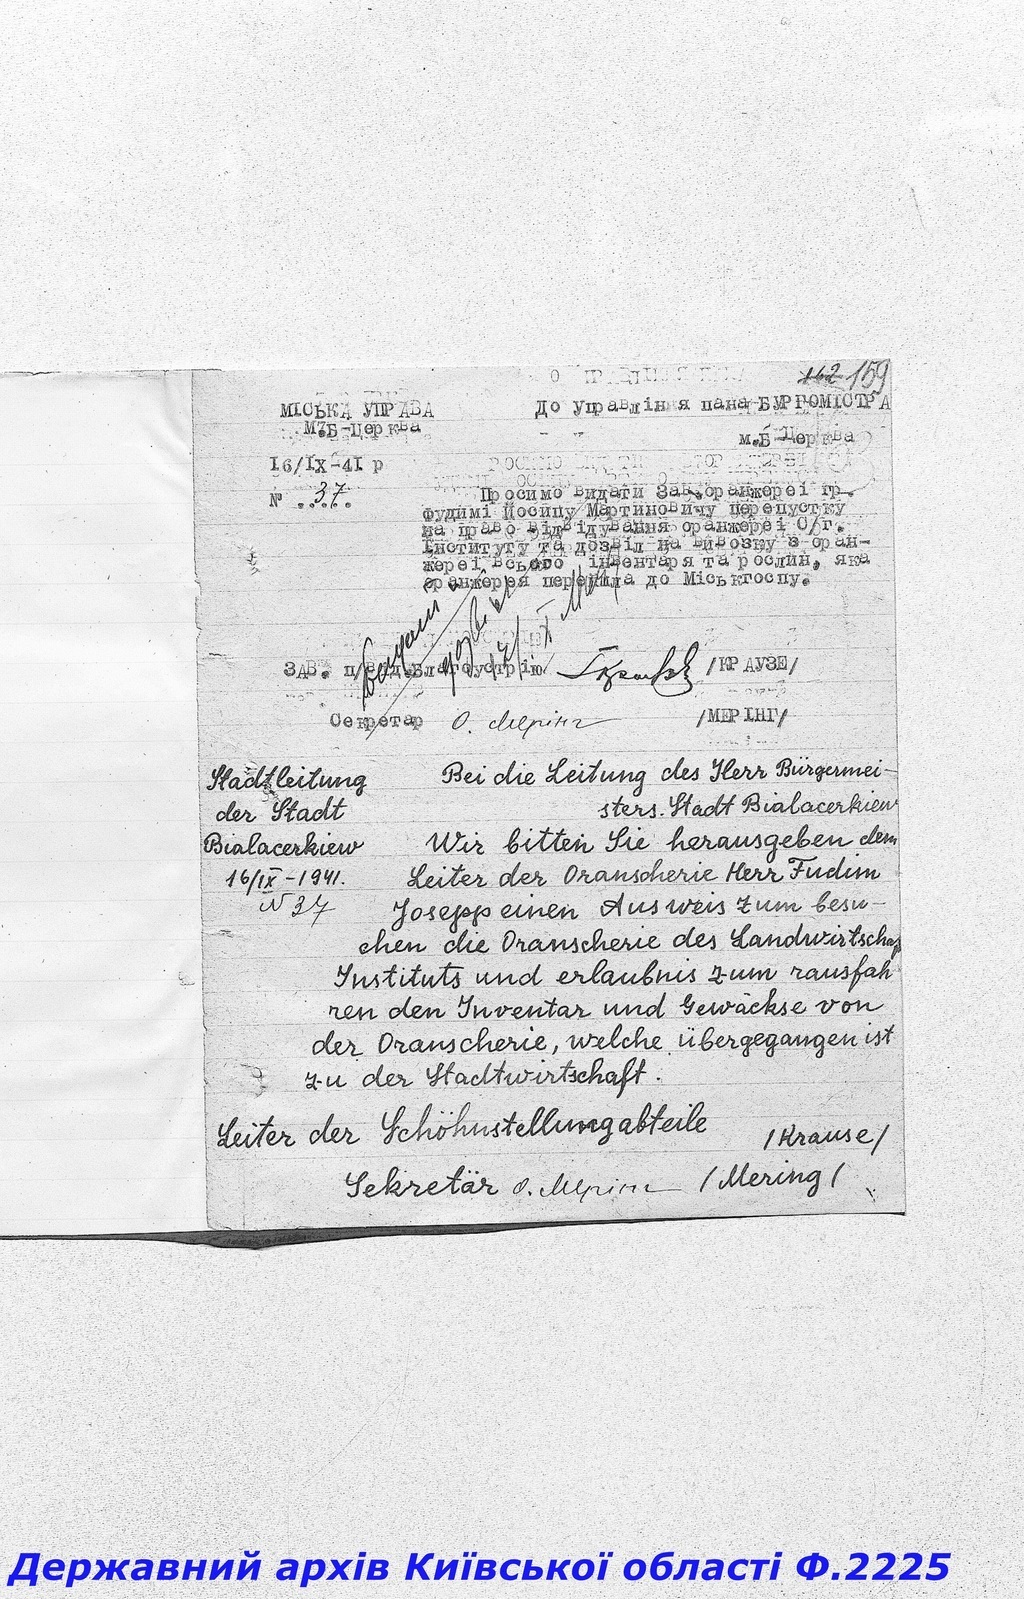 162 159
МІСЬКА УПРАВА
М.Б-Церква
До Управління пана БУРГОМІСТРА
м.Б-Церква
16/IX-41 р
№ 37
Просимо видати Зав.оранжереї гр.
Фудимі Йосипу Мартиновичу перепустку
на право відвідування оранжереї С/г.
Інституту та дозвіл на вивозку з оран-
жереї всього інвентаря та рослин, яка
оранжерея перейшла до Міськгоспу.
дозвіл
17/IX
ЗАВ. п/від.Благоустрію /КРАУЗЕ/
Секретар О. Мерінг /МЕРІНГ/
Stadtleitung
der Stadt
Bialacerkiew
16/IX-1941.
N 37
Bei die Leitung des Herr Bürgermei-
sters. Stadt Bialacerkiew
Wir bitten Sie herausgeben dem
Leiter der Oranscherie Herr Fudim
Josepp einen Ausweis zum besu-
chen die Oranscherie des Landwirtschaf
Instituts und erlaubnis zum rausfah
ren den Inventar und Gewäckse von
der Oranscherie, welche übergegangen ist
zu der Stadtwirtschaft.
Leiter der Schöhnstellungabteile /Krause/
Sekretär О. Мерінг /Mering/
Державний архів Київської області Ф.2225